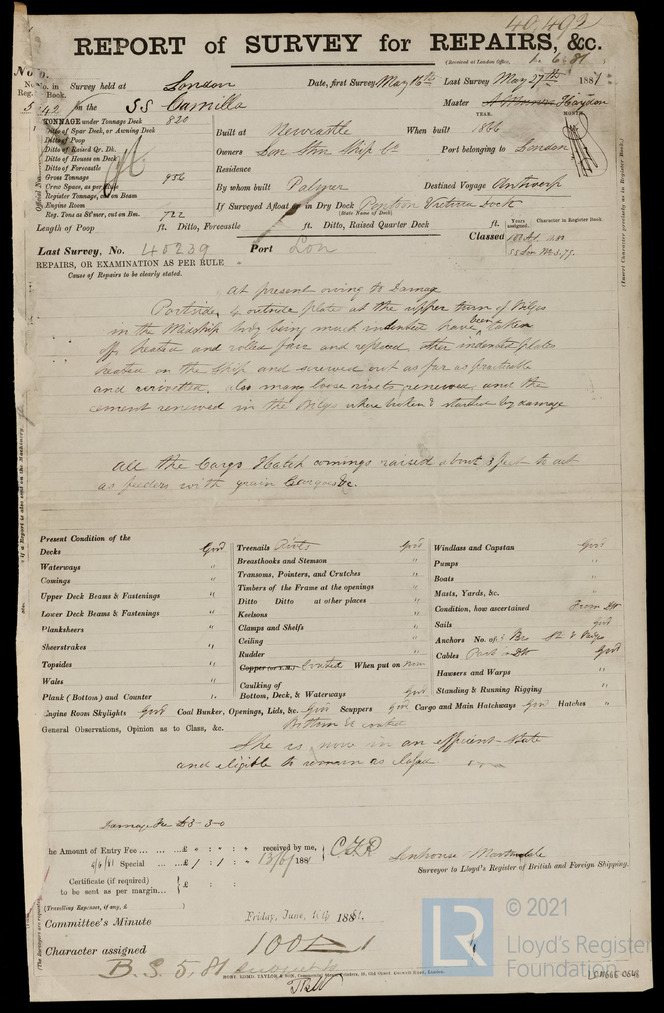 40,492
REPORT of SURVEY for REPAIRS, &c.
(Received at London Office, 1. 6. 81)
No. in Reg. Book. Survey held at London Date, first Survey May 16th Last Survey May 27th 1881
542 on the SS Camilla Master Haydon
TONNAGE under Tonnage Deck 820
Ditto of Spar Deck, or Awning Deck
Ditto of Poop
Ditto of Raised Qr. Dk.
Ditto of Houses on Deck
Ditto of Forecastle
Gross Tonnage 956
Crew Space, as per Rule
Register Tonnage, cut on Beam
Engine Room
Reg. Tons as St'mer, cut on Bm. 722
YEAR. MONTH.
Built at Newcastle When built 1866
Owners Lon Stm Ship Co Port belonging to London
Residence
By whom built Palmer Destined Voyage Antwerp
If Surveyed Afloat or in Dry Dock Victoria Dock
(State Name of Dock)
Length of Poop ft. Ditto, Forecastle ft. Ditto, Raised Quarter Deck ft.
Years assigned. Character in Register Book.
Classed
Last Survey, No. 40239 Port Lon
REPAIRS, OR EXAMINATION AS PER RULE
Cause of Repairs to be clearly stated.
At present owing to Damage
Portside, 4 outside plates at the upper turn of Bilges
in the Midship body being much indented have been taken
off heated and rolled fair and replaced, other indented plates
heated on the Ship and screwed out as far as practicable
and rerivetted. also many loose rivets renewed, and the
cement renewed in the Bilges where broken & started by damage
All the Cargo Hatch comings raised about 3 feet to act
as feeders with grain Cargoes &c.
Present Condition of the
Decks Good
Waterways "
Comings "
Upper Deck Beams & Fastenings "
Lower Deck Beams & Fastenings "
Planksheers "
Sheerstrakes "
Topsides "
Wales "
Plank (Bottom) and Counter "
Treenails Rivets Good
Breasthooks and Stemson "
Transoms, Pointers, and Crutches "
Timbers of the Frame at the openings "
Ditto Ditto at other places "
Keelsons "
Clamps and Shelfs "
Ceiling "
Rudder "
Copper (or Y.M.) Coated When put on now
Caulking of
Bottom, Deck, & Waterways Good
Windlass and Capstan Good
Pumps "
Boats "
Masts, Yards, &c. "
Condition, how ascertained From Dk
Sails Good
Anchors No. of
Cables Good
Hawsers and Warps "
Standing & Running Rigging "
Engine Room Skylights Good Coal Bunker, Openings, Lids, &c. Good Scuppers Good Cargo and Main Hatchways Good Hatches "
General Observations, Opinion as to Class, &c.
She is now in an efficient state
and eligible to remain as Classed.
Damage Fee £3-3-0
The Amount of Entry Fee ... £ : : received by me,
Special ... £ 1 : 1 : 13/6/1881
Surveyor to Lloyd's Register of British and Foreign Shipping.
Certificate (if required)
to be sent as per margin... £ : :
(Travelling Expenses, if any, £ )
Committee's Minute Friday, June, 1881.
Character assigned 100A1
B.S. 5. 81
© 2021
LR
Lloyd's Register
Foundation